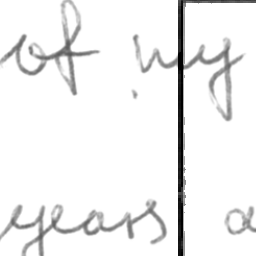 of my
years a